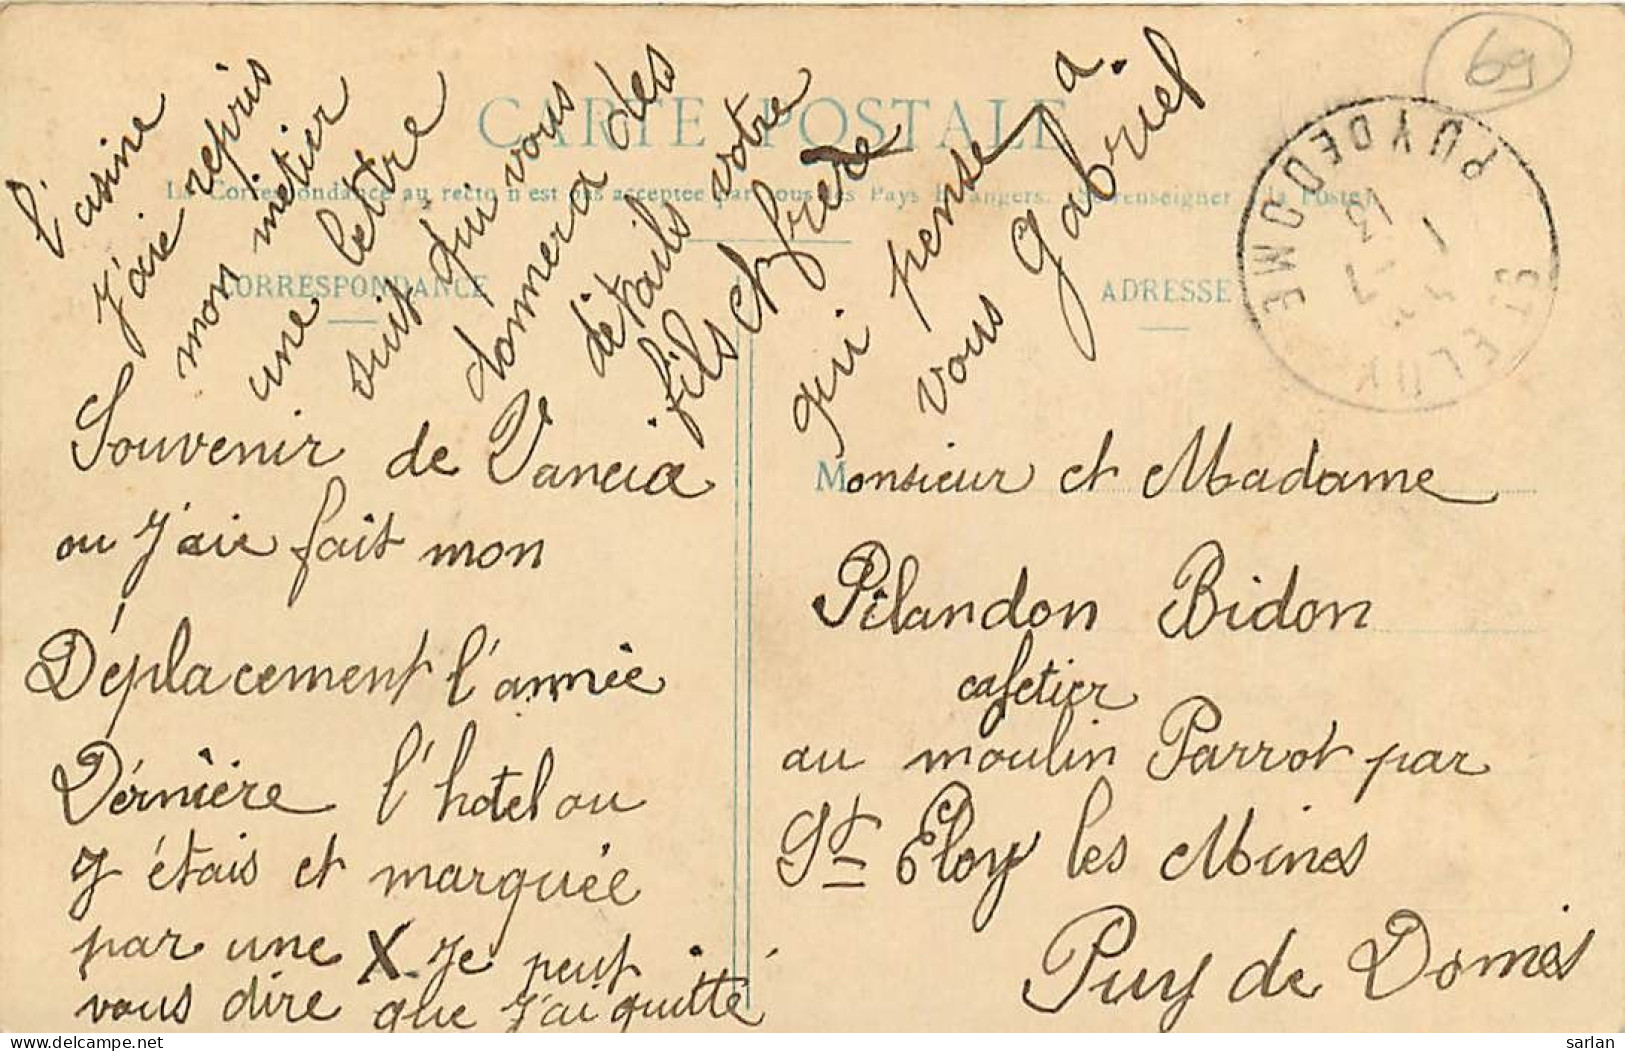 69
CARTE POSTALE
La Correspondance au recto n'est pas acceptée par tous les Pays Étrangers. (Se renseigner à la Poste)
CORRESPONDANCE
ADRESSE
ST ELOY
PUY DE DOME
Souvenir de Vancia
ou J'aie fait mon
Déplacement l'année
Dérnière l'hotel ou
J'étais et marquée
par une X. Je peut
vous dire que J'ai quitté
l'usine
J'aie repris
mon métier
une lettre
suit qui vous
donnera des
détails votre
fils et frère
qui pense a.
vous Gabriel
Monsieur et Madame
Pélandon Bidon
cafetier
au moulin Parrot par
St Eloy les Mines
Puy de Dome
sarlan